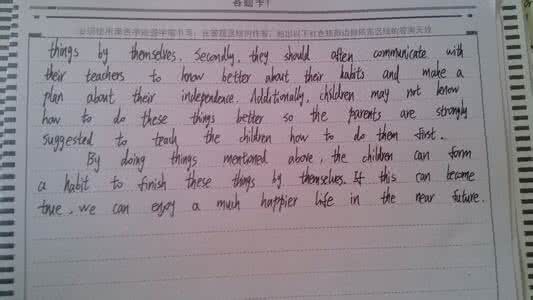 答题卡
things by themselves. Secondly, they should often communicate with
their teachers to know better about their habits and make a
plan about their independence. Additionally, children may not know
how to do these things better so the parents are strongly
suggested to teach the children how to do them first.
By doing things mentioned above, the children can form
a habit to finish these things by themselves. If this can become
true, we can enjoy a much happier life in the near future.